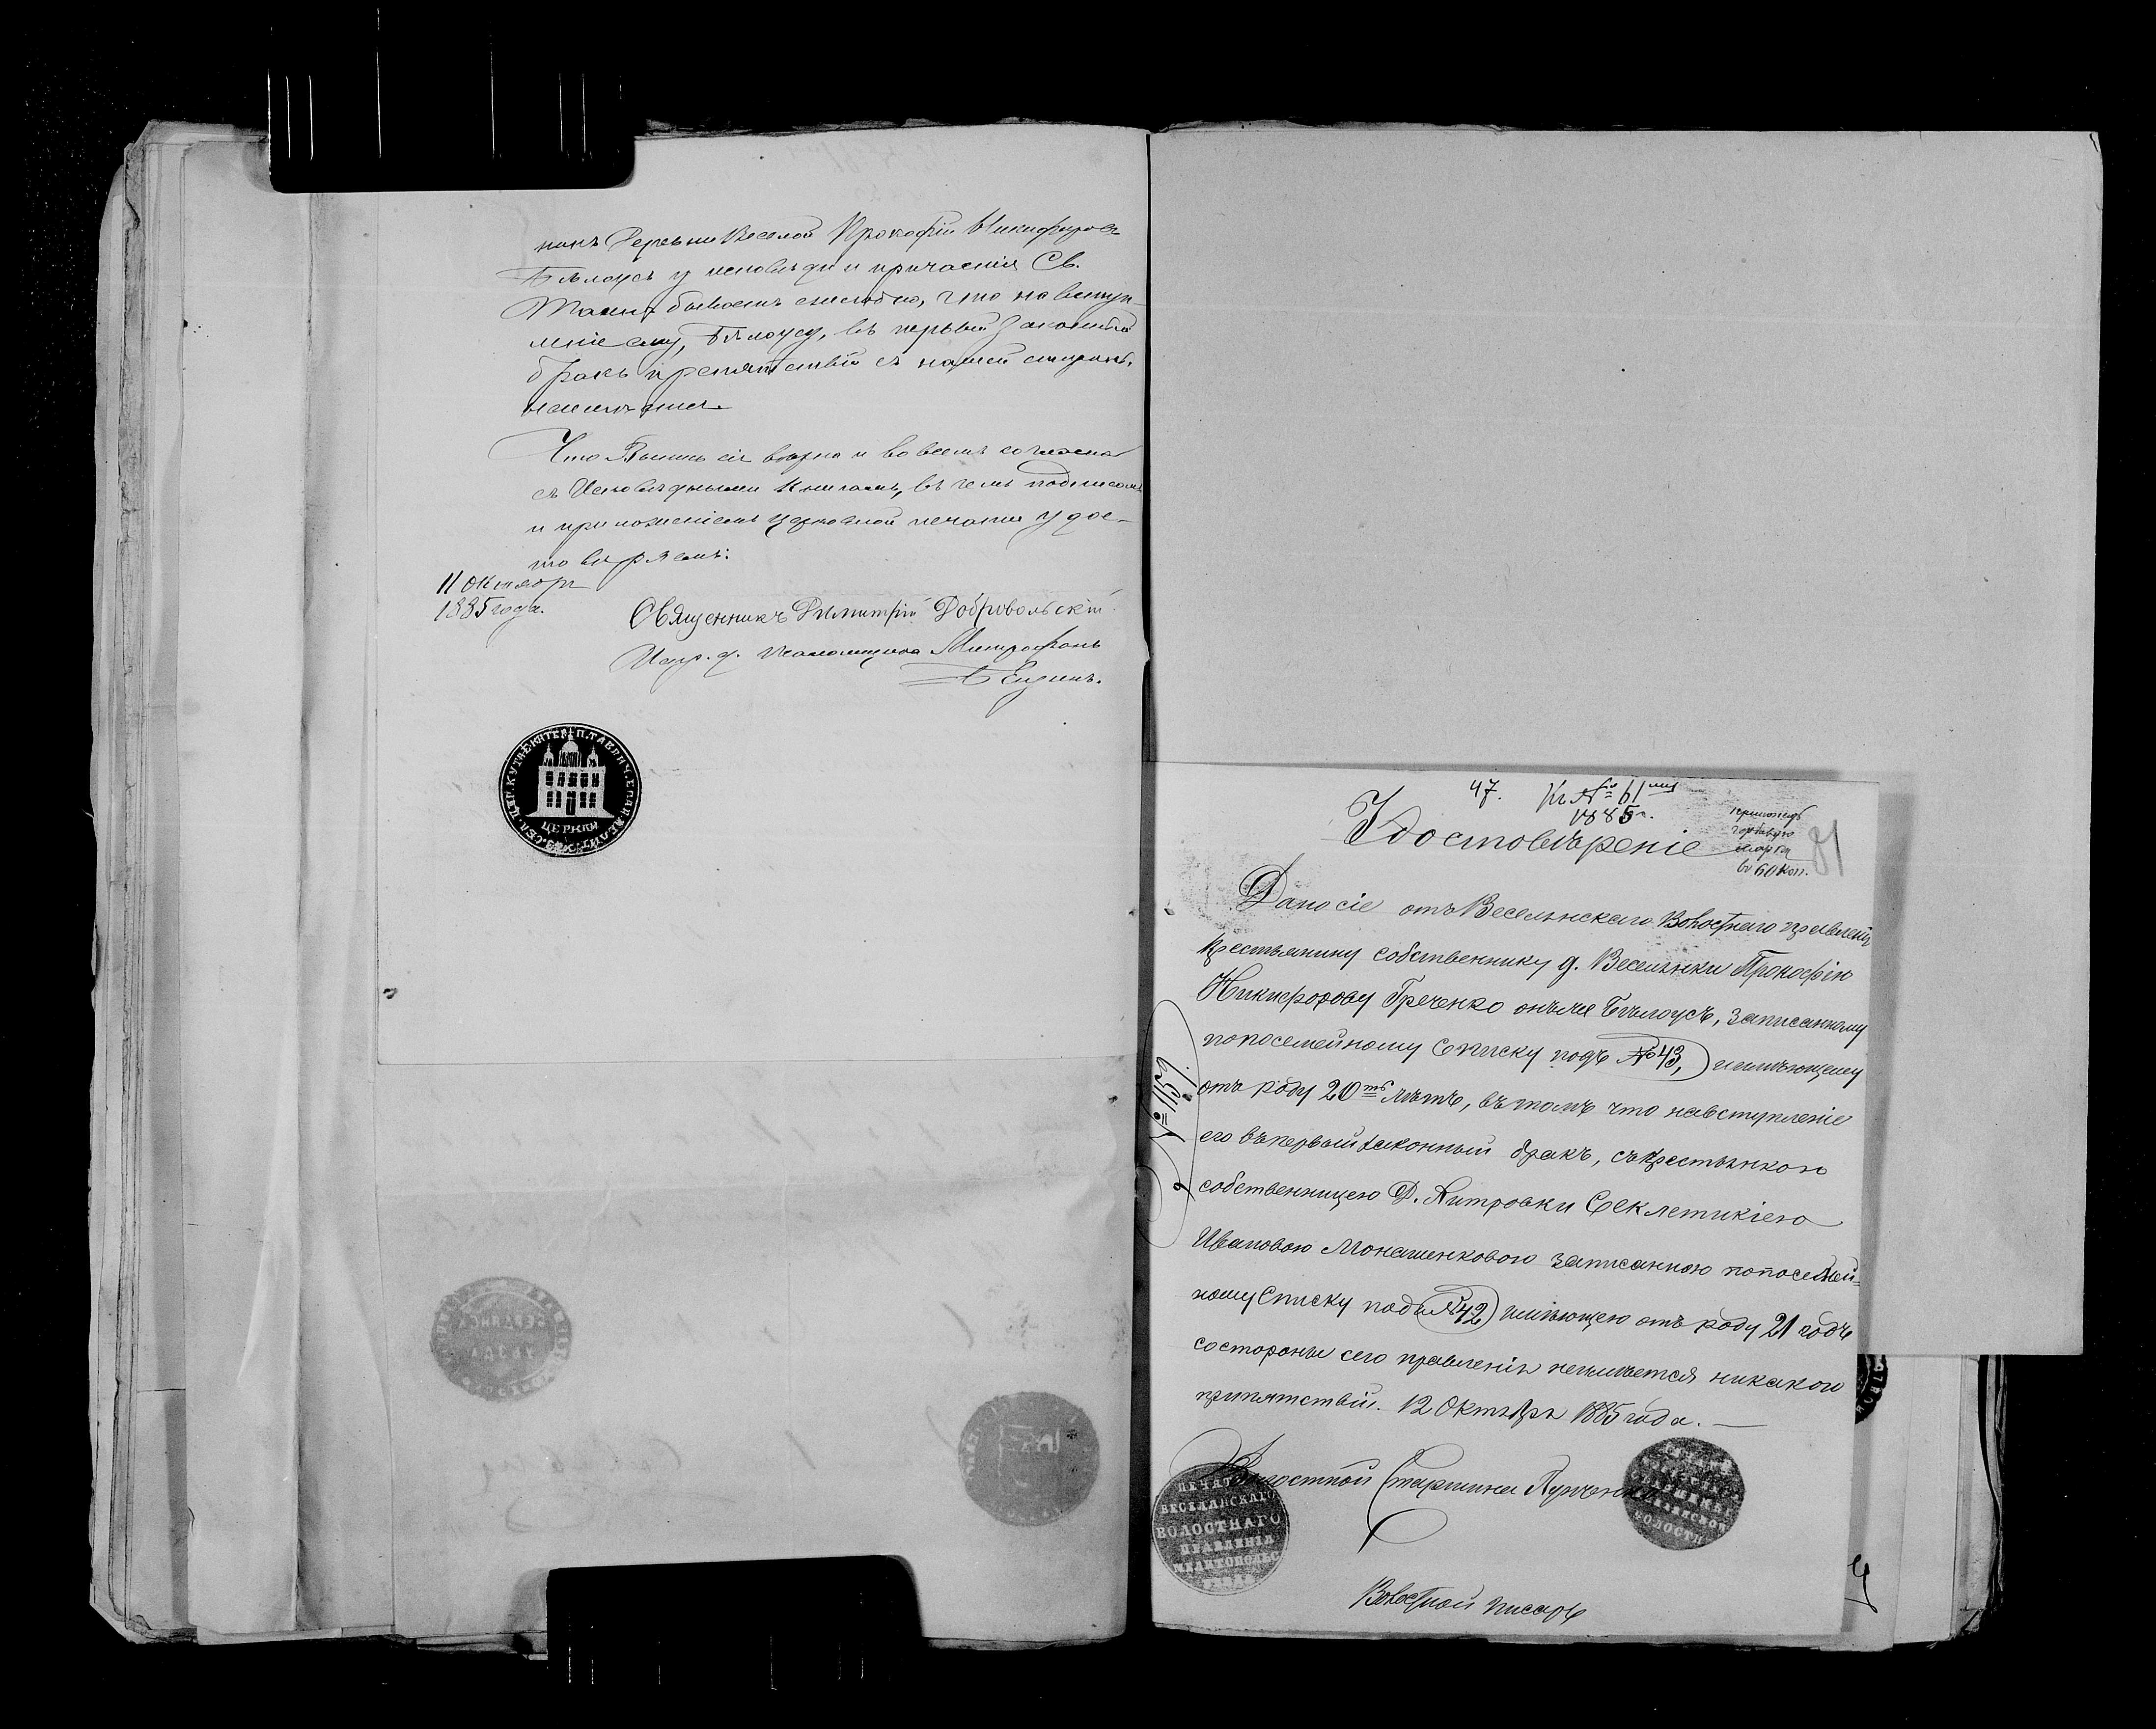 нинъ Деревни Веселой Прокофій Никифоровъ
Бѣлоусъ у исповѣди и причастія Св.
Таинъ бываетъ ежегодно, что на вступ-
леніе ему, Бѣлоусу, въ первый законный
бракъ препятствій съ нашей стороны
неимѣется.
Что Выпись сія вѣрна и во всемъ согласна
съ Исповѣдными книгами, въ чемъ подписомъ
и приложеніемъ церковной печати удос-
товѣряемъ:
11 Октября
1885 года.
Священникъ Димитрій Добровольскій
Испр. д. Псаломщика Митрофанъ
ЦЕРКВИ
47. Къ № 61
1885 г.
Удостовѣреніе
гербовую
марку
въ 60 коп.
81
Дано сіе отъ Веселянскаго Волостнаго правленія
крестьянину собственнику д. Веселянки Прокофію
Никифорову Греченко онъ же Бѣлоусъ, записанному
попосемейному Списку подъ № 43, имѣющему
отъ роду 20 лѣтъ, въ томъ что навступленіе
его въ первый законный бракъ, съ крестьянкою
собственницею Д. Янтровки Секлетикіею
Ивановою Монашенковою записанною попосемей-
ному Списку подъ № 42 имѣющею отъ роду 21 годъ
состороны сего правленія неимѣется никакои
припятствій. 12 Октября 1885 года.
Волостной Старшина
ПЕЧАТЬ
ВЕСЕЛЯНСКАГО
ВОЛОСТНАГО
ПРАВЛЕНІЯ
МЕЛИТОПОЛЬС
УѢЗДА
ВОЛОСТИ
Волостной писарь